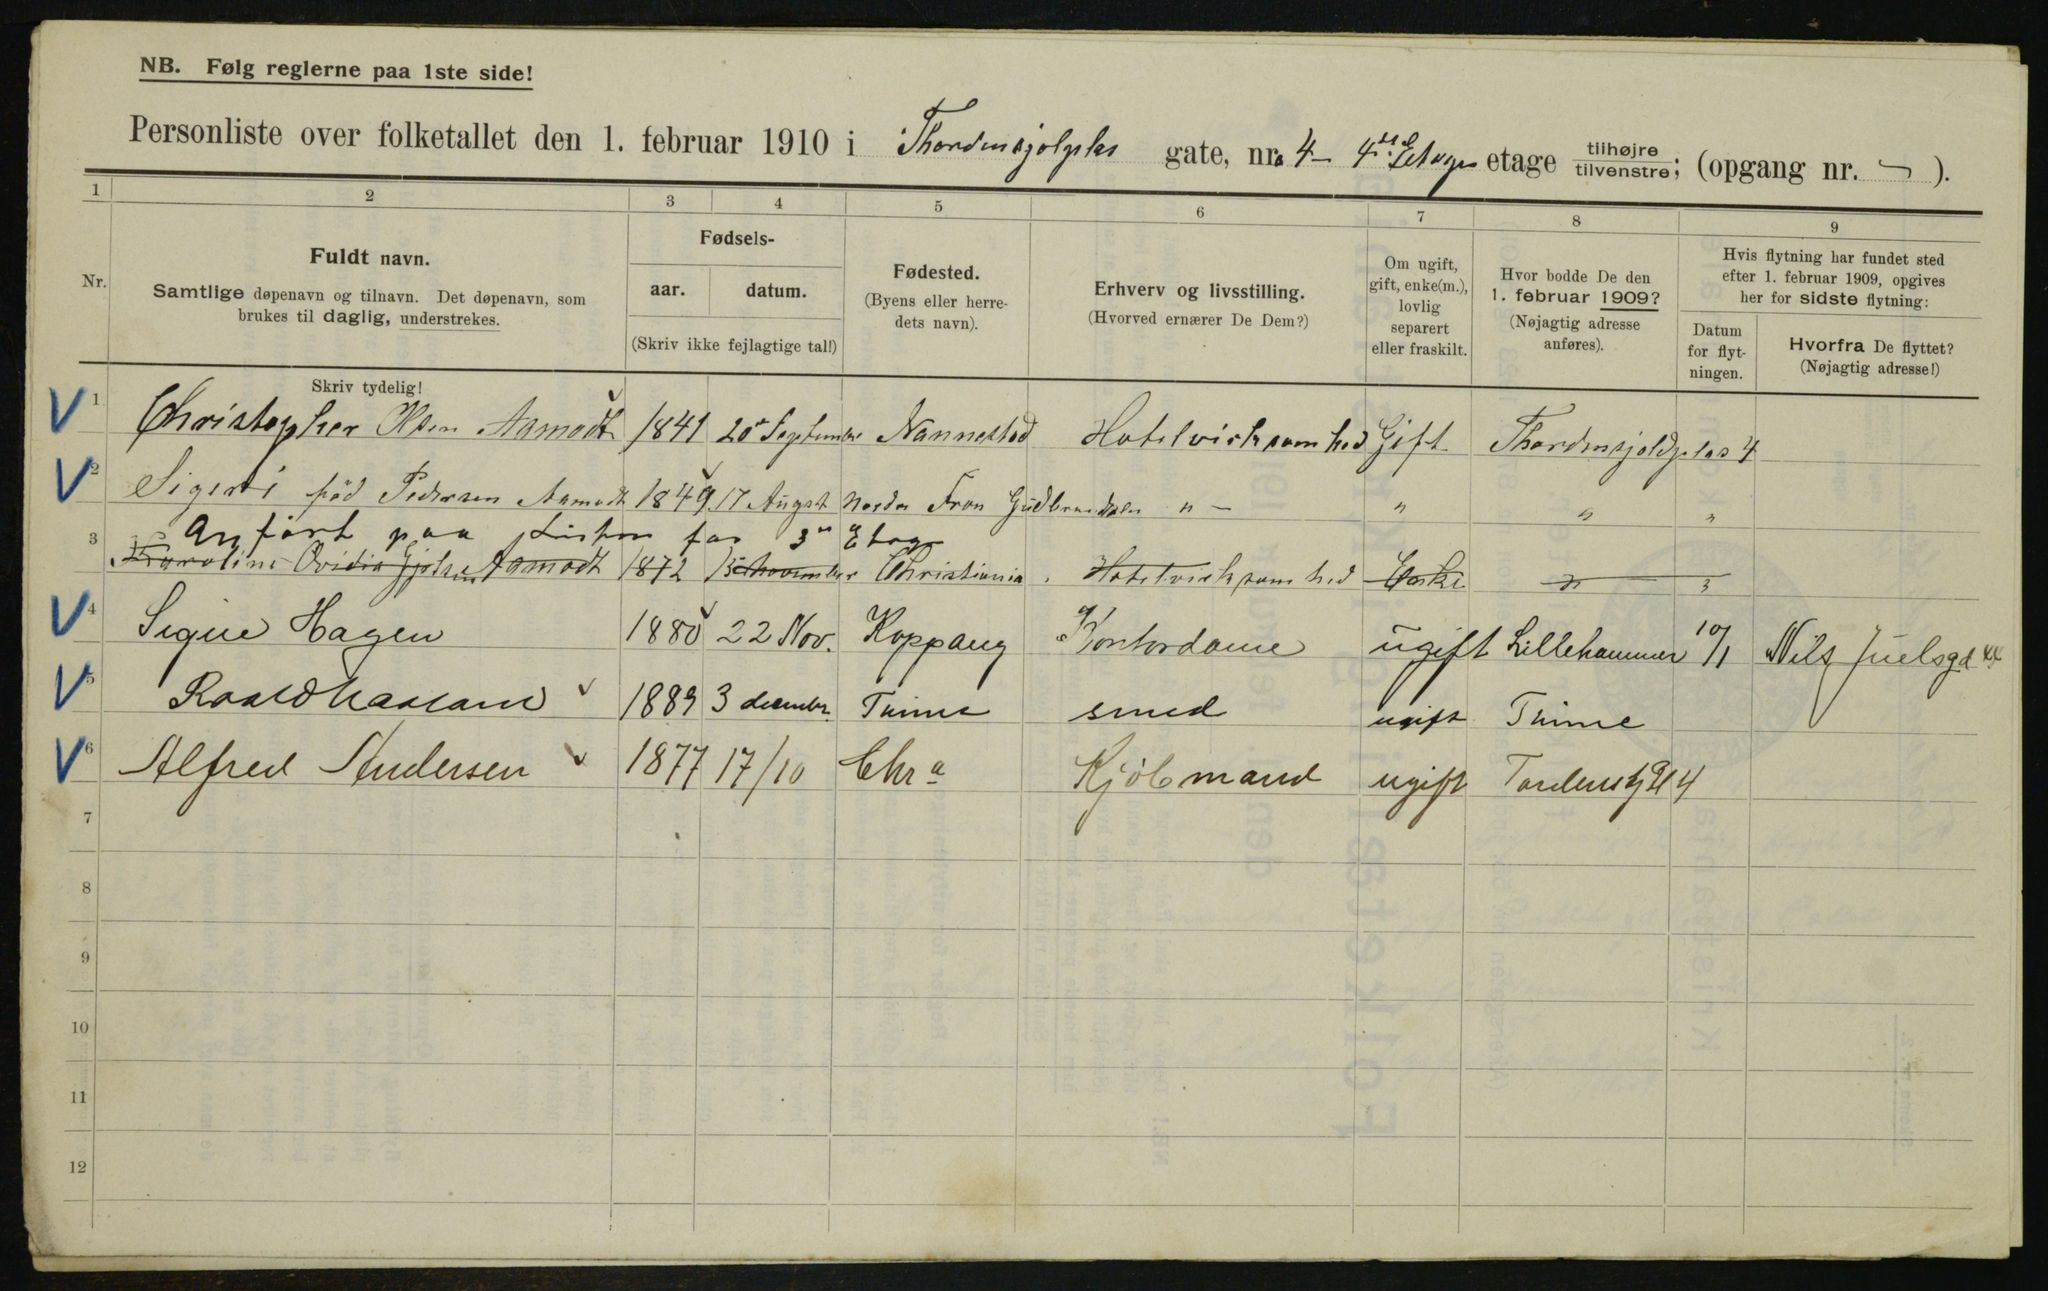 NB. Følg reglerne paa 1ste side!
Personliste over folketallet den 1. februar 1910 i Thordenskjolsplas gate, nr. 4 – 4de Etage etage tilhøjre/tilvenstre; (opgang nr. – ).
1 2 3 4 5 6 7 8 9
Nr. Fuldt navn. Samtlige døpenavn og tilnavn. Det døpenavn, som brukes til daglig, understrekes. Skriv tydelig!
Fødsels- aar. datum. (Skriv ikke fejlagtige tal!)
Fødested. (Byens eller herredets navn).
Erhverv og livsstilling. (Hvorved ernærer De Dem?)
Om ugift, gift, enke(m.), lovlig separert eller fraskilt.
Hvor bodde De den 1. februar 1909? (Nøjagtig adresse anføres).
Hvis flytning har fundet sted efter 1. februar 1909, opgives her for sidste flytning:
Datum for flytningen. Hvorfra De flyttet? (Nøjagtig adresse!)
V 1 Christopher Olsen Aamodt 1841 20 September Nannestad Hotelvirksomhed Gift Thordenskjoldsplas 4
V 2 Sigerid född Pedersen Aamodt 1849 17 August Nordre Fron Gudbrandsdalen " – " " "
Anført paa Listen for 3die Etage
3 Karoline Ovidia Aamodt 1872 15 November Christiania Hotelvirksomhed Enke " "
V 4 Signe Hagen 1880 22 Nov. Koppang Kontordame ugift Lillehammer 10/1 Nils Juelsgd 44
V 5 1889 3 december Time smed ugift Time
V 6 Alfred Andersen 1877 17/10 Chra Kjøbmand ugift Tordenskj Pl 4
7
8
9
10
11
12